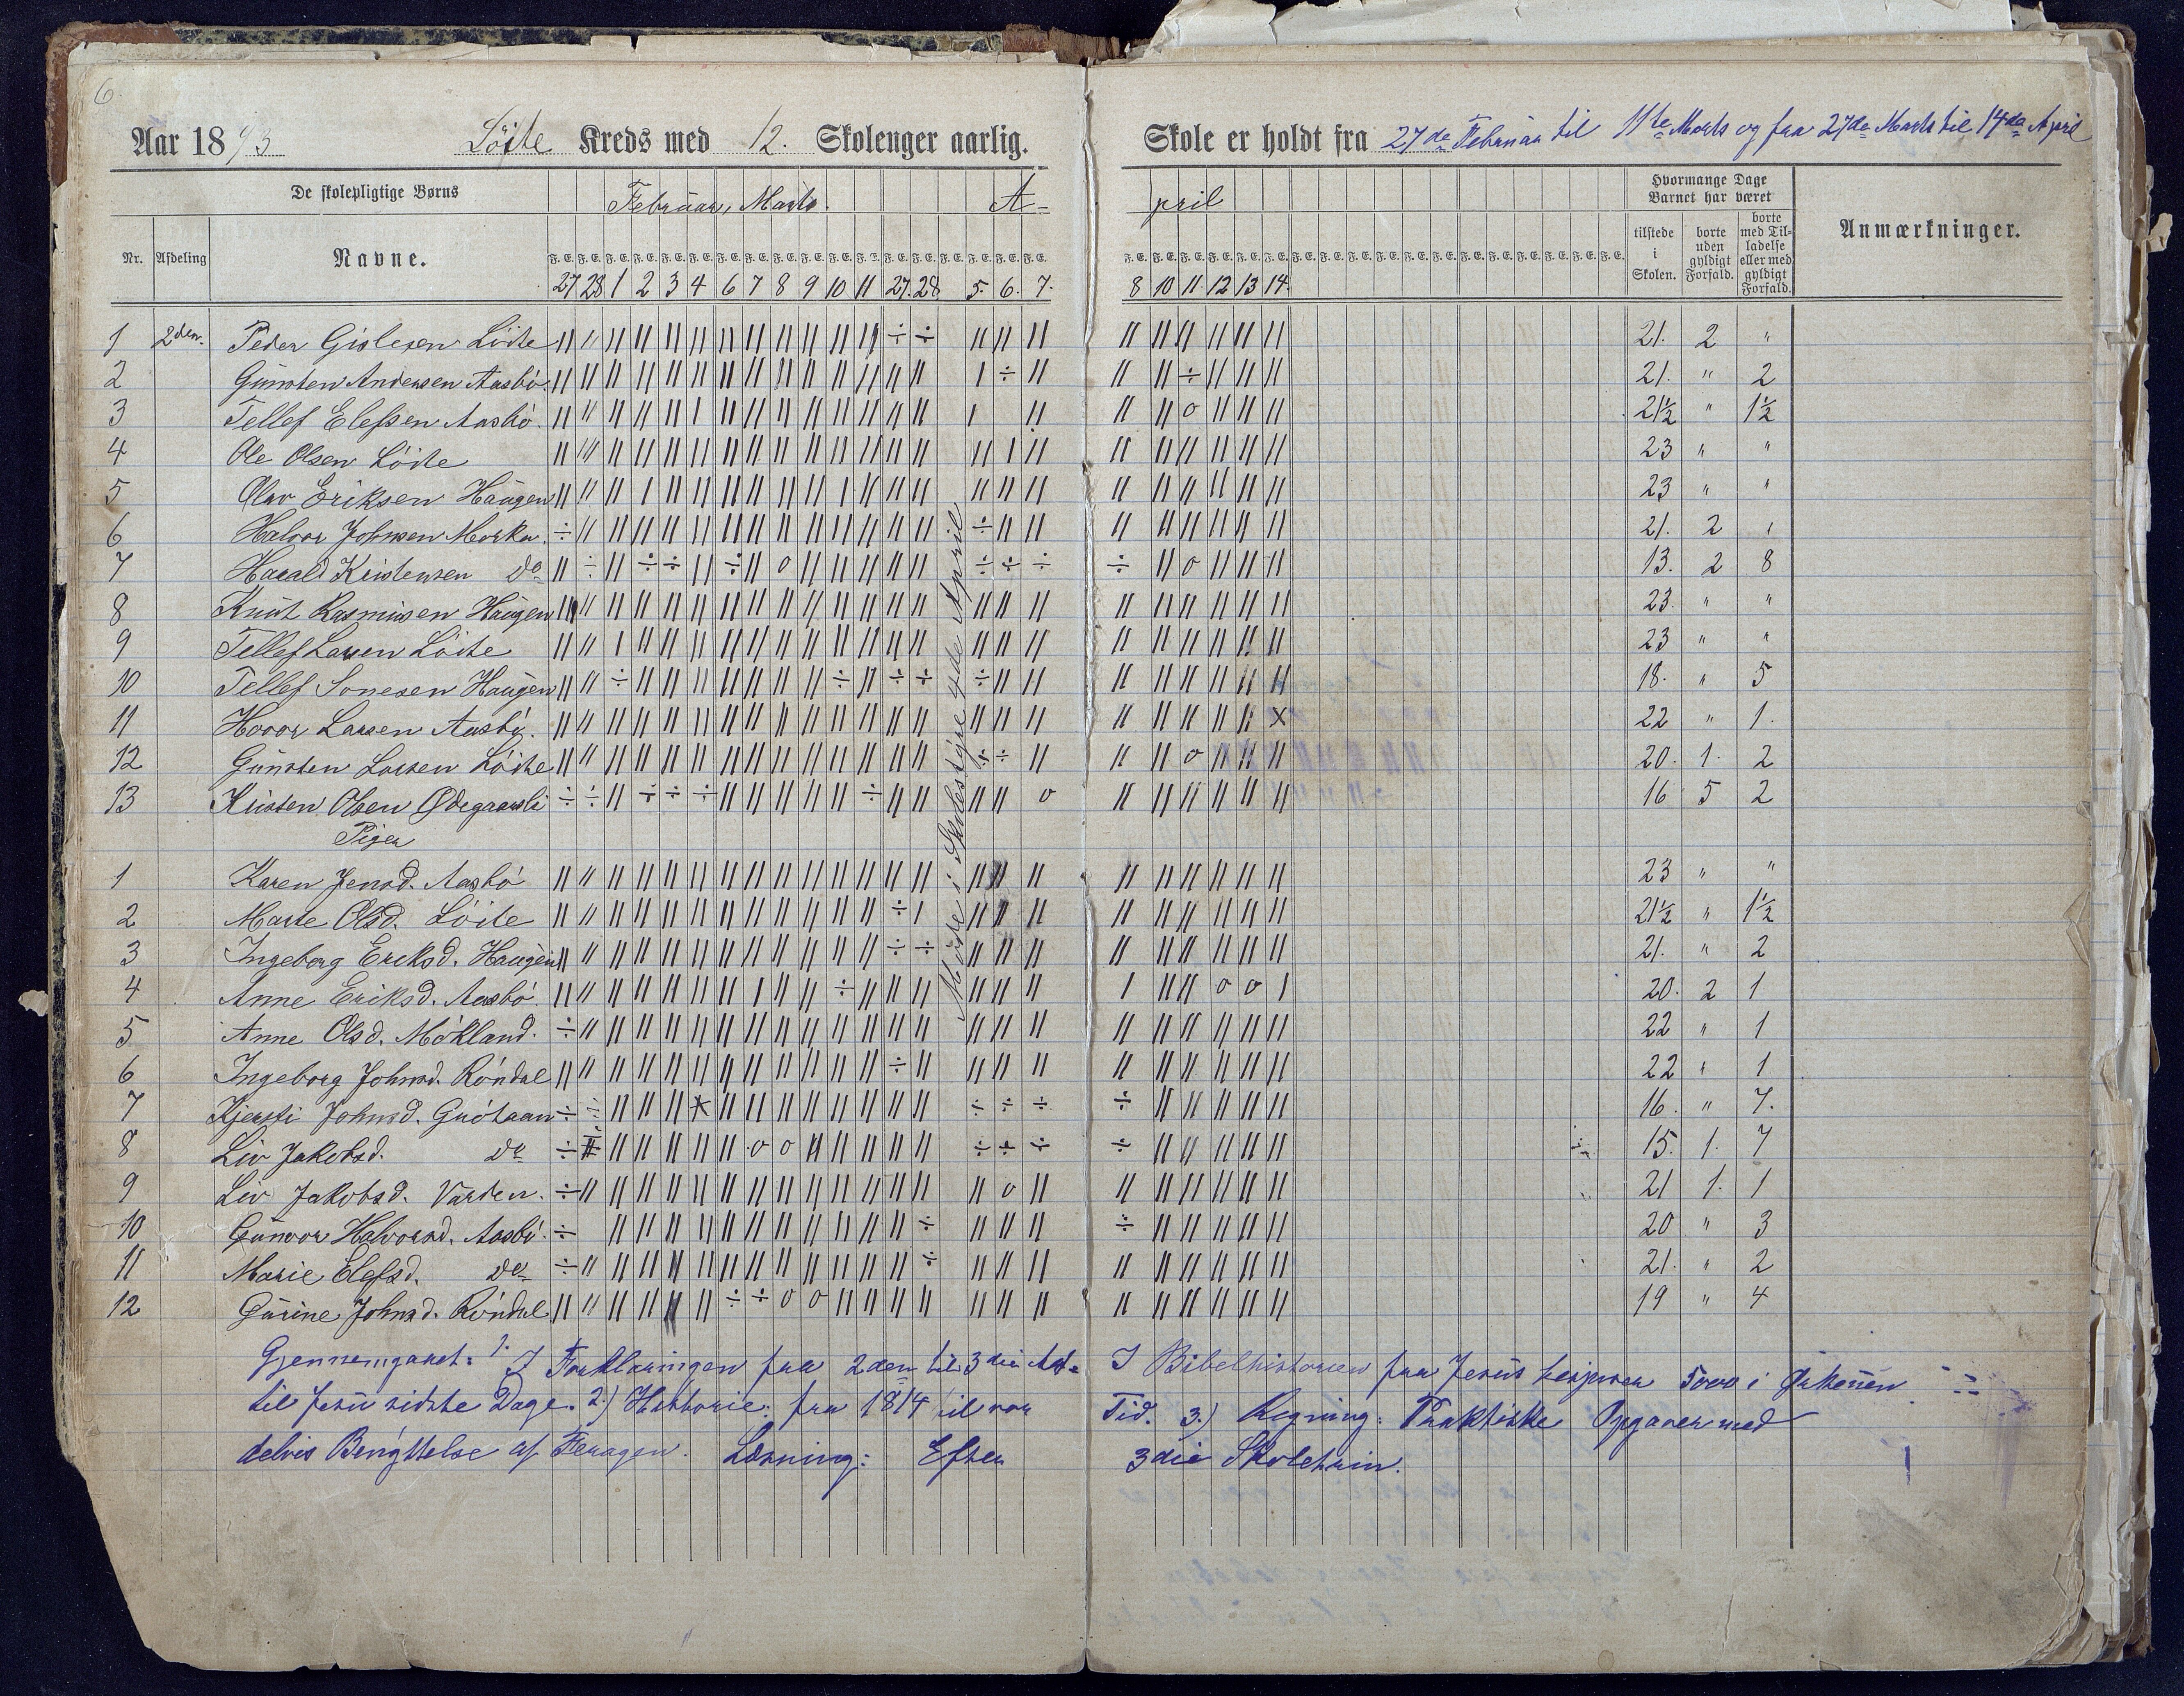 6.
Aar 1893 Löite Kreds med 12. Skolenger aarlig. Skole er holdt fra 27de Februar til 11te Marts og fra 27de Marts til 14de April
De skolepligtige Børns Februar, Marts. A- pril Hvormange Dage Barnet har været
Nr. Afdeling Navne. tilstede i Skolen. borte uden gyldigt Forfald. borte med Tilladelse eller med gyldigt Forfald. Anmærkninger.
27 28 1 2 3 4 6 7 8 9 10 11 27. 28 5. 6. 7. 8 10 11 12 13 14.
1 2den. Peder Gislesen Löite 21. 2 "
2 Gunsten Andersen Aasbö. 21. " 2
3 Tellef Elefsen Aasbö. 21½ " 1½
4 Ole Olsen Löite 23 " "
5 Olav Eriksen Haugen 23 " "
6 Halvor Johnsen Morka. 21. 2 "
7 Harald Kristensen do 13. 2 8
8 Knut Rasmusen Haugen 23. " "
9 Tellef Larsen Löite 23 " "
10 Tellef Sonesen Haugen 18. " 5
11 Hovor Larsen Aasbö. 22 " 1.
12 Gunsten Larsen Löite 20. 1. 2
13 Kristen Olsen Ødegaards 16 5 2
Piger
1 Karen Jensd. Aasbö 23 " "
2 Marte Olsd. Löite 21½ " 1½
3 Ingeborg Eriksd. Haugen 21. " 2
4 Anne Eriksd. Aasbö. 20. 2 1
5 Anne Olsd. Mökland. 22 " 1
6 Ingeborg Johnsd. Röndal 22 " 1
7 Kjersti Johnsd. 16. " 7.
8 Liv Jakobsd. do 15. 1. 7
9 Liv Jakobsd. Varden. 21 1. 1
10 Gunvor Halvorsd. Aasbö. 20 " 3
11 Marie Elefsd. do 21. " 2
12 Gurine Johnsd. Röndal 19 " 4
Möde i Skolestyre 4de April
Gjennemgaaet: 1. I Forklaringen fra 2den til 3die Art. I Bibelhistorien fra Jesus bespiser 5000 i Ørkenen
til Jesu sidste Dage. 2.) Historie: fra 1814 til vor Tid. 3.) Regning: Praktiske Opgaver med
delvis Benyttelse af Feragen. Læsning: Efter 3die Skoletrin.